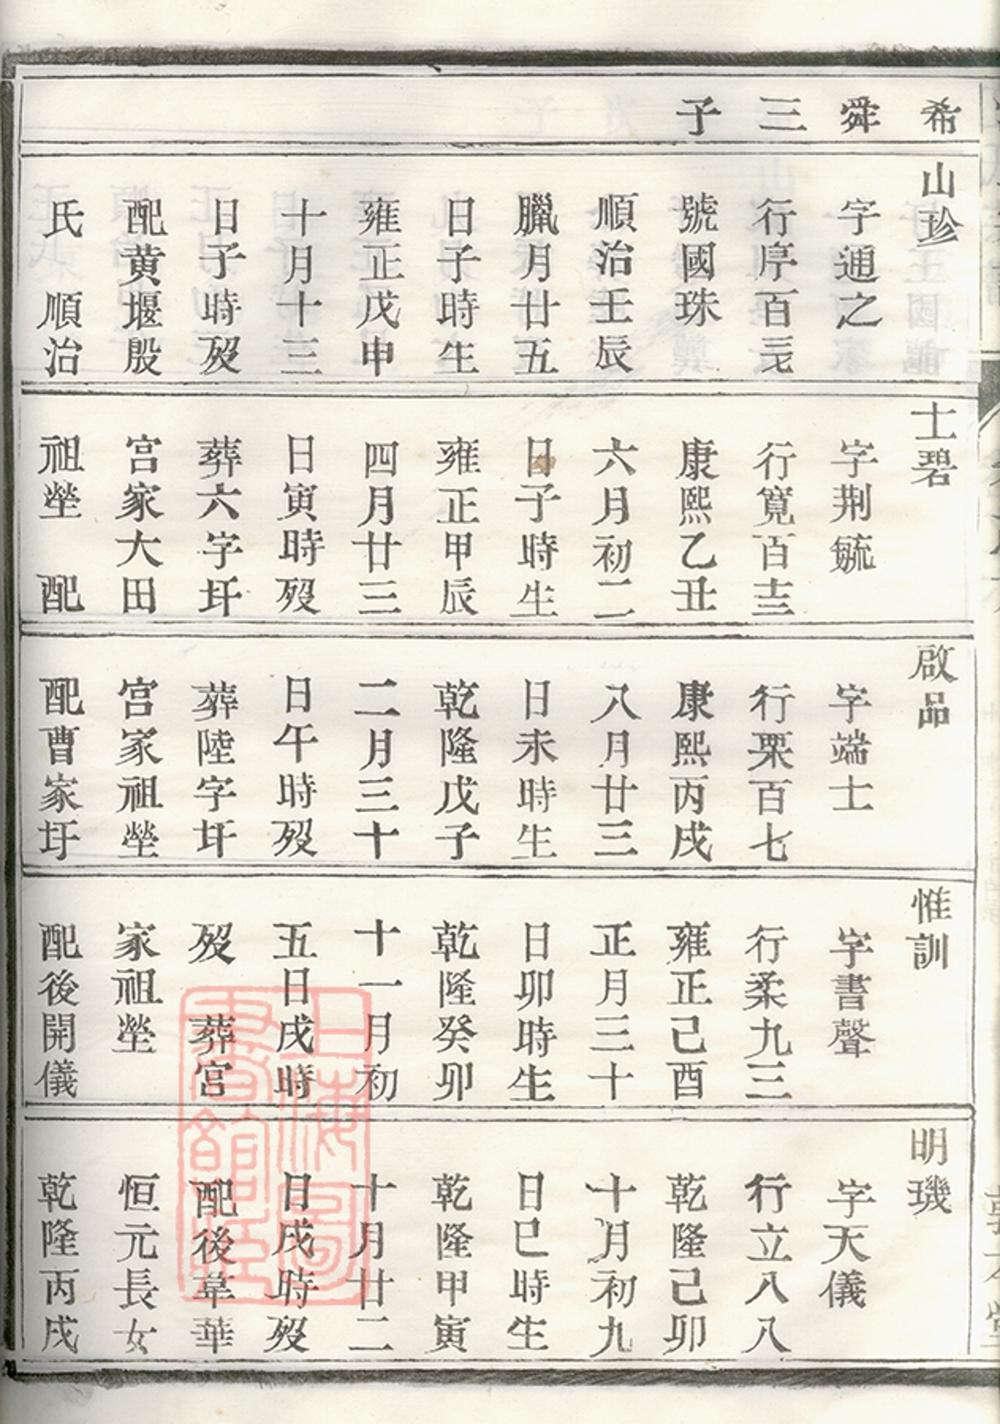 希舜三子
山珍
字通之
行序百三
號國珠
順治壬辰
臘月廿五
日子時生
雍正戊申
十月十三
日子時歿
配黄堰殷
氏 順治
士碧
字荆毓
行寛百吉
康熙乙丑
六月初二
日子時生
雍正甲辰
四月廿三
日寅時歿
葬六字圩
宫家大田
祖塋 配
啟品
字端士
行栗百七
康熙丙戌
八月廿三
日未時生
乾隆戊子
二月三十
日午時歿
葬陸字圩
宫家祖塋
配曹家圩
惟訓
字書聲
行柔九三
雍正己酉
正月三十
日卯時生
乾隆癸卯
十一月初
五日戌時
歿 葬宫
家祖塋
配後開儀
明璣
字天儀
行立八八
乾隆己卯
十月初九
日巳時生
乾隆甲寅
十月廿二
日戌時歿
配後韋華
恒元長女
乾隆丙戌
上海圖
書館藏